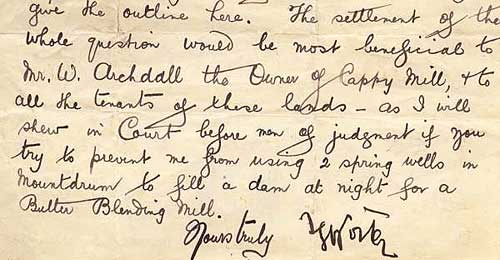 give the outline here. The settlement of the
whole question would be most beneficial to
Mr. W. Archdall the Owner of Cappy Mill, & to
all the tenants of these lands – as I will
shew in Court before men of judgment if you
try to prevent me from using 2 spring wells in
Mountdrum to fill a dam at night for a
Butter Blending Mill.
Yours truly